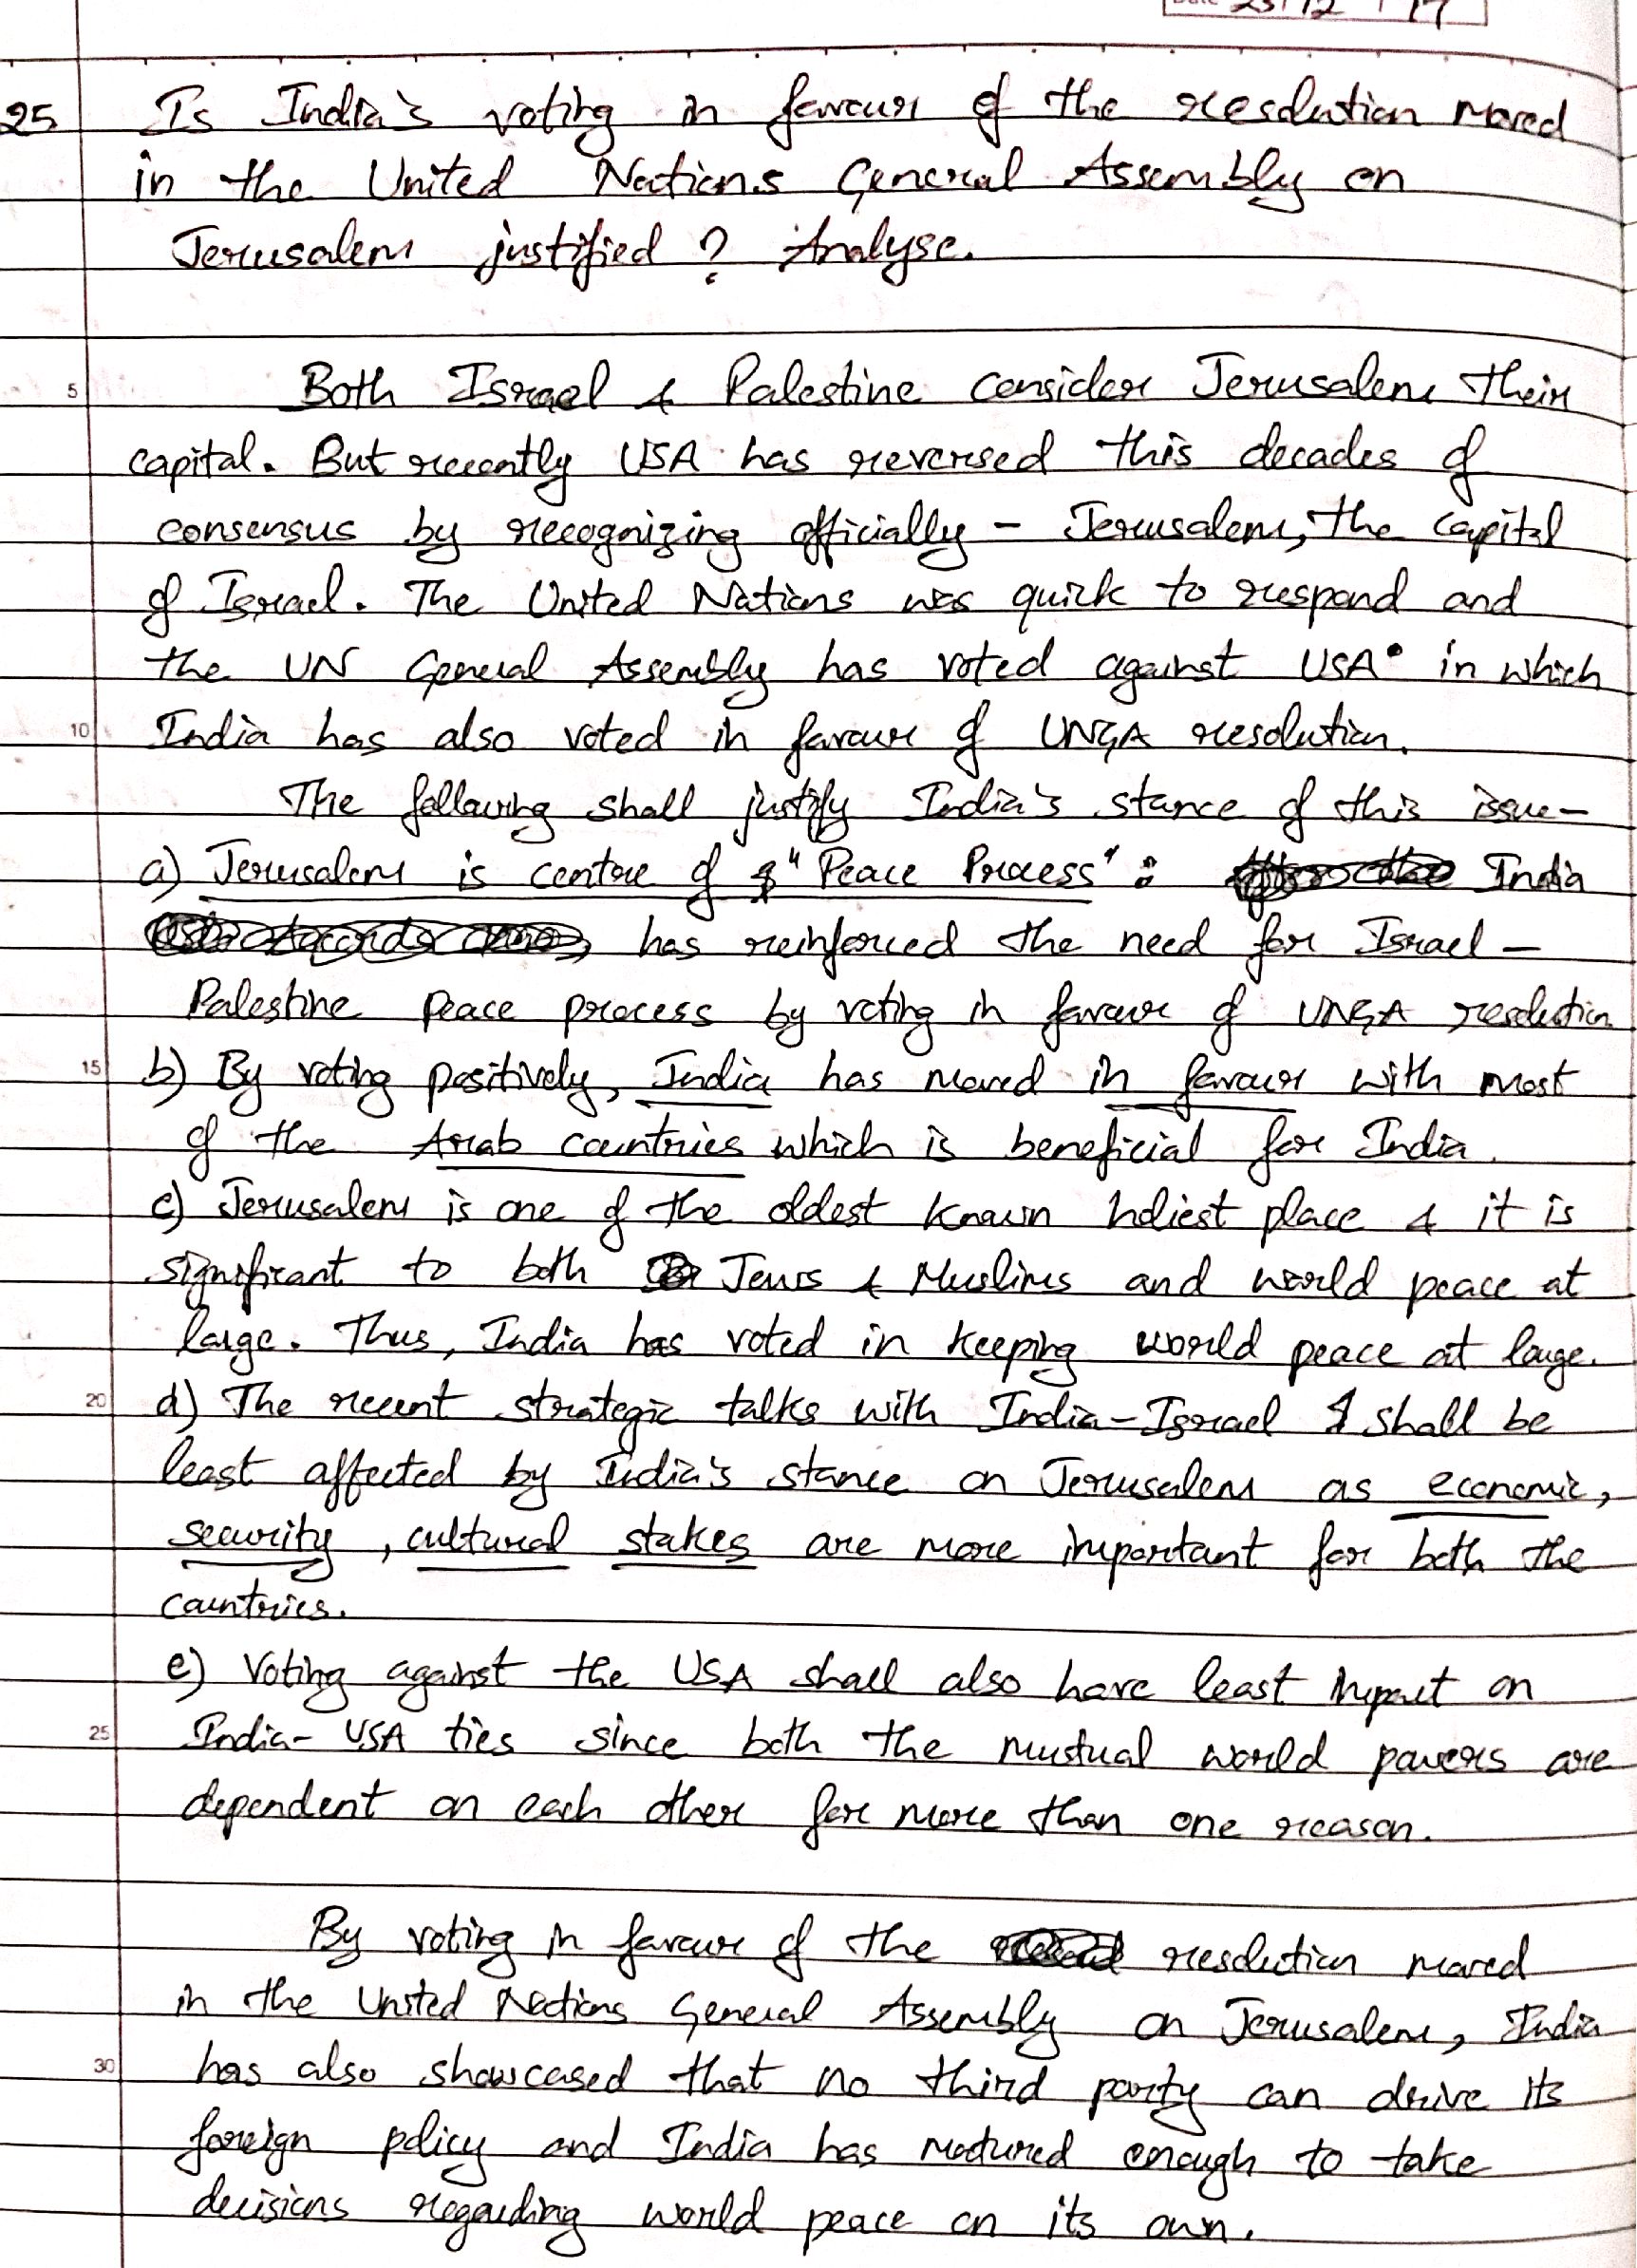 Date 23/12/17
25 Is India's voting in favour of the resolution moved
in the United Nations General Assembly on
Jerusalem justified? Analyse.
5 Both Israel & Palestine consider Jerusalem their
capital. But recently USA has reversed this decades of
consensus by recognizing officially - Jerusalem, the capital
of Israel. The United Nations was quick to respond and
the UN General Assembly has voted against USA in which
10 India has also voted in favour of UNGA resolution.
The following shall justify India's stance of this issue-
a) Jerusalem is centre of "Peace Process": India
has reinforced the need for Israel-
Palestine peace process by voting in favour of UNGA resolution
15 b) By voting positively, India has moved in favour with most
of the Arab countries which is beneficial for India.
c) Jerusalem is one of the oldest known holiest place & it is
significant to both Jews & Muslims and world peace at
large. Thus, India has voted in keeping world peace at large.
20 d) The recent strategic talks with India-Israel shall be
least affected by India's stance on Jerusalem as economic,
security, cultural stakes are more important for both the
countries.
e) Voting against the USA shall also have least impact on
25 India-USA ties since both the mustual world powers are
dependent on each other for more than one reason.
By voting in favour of the resolution moved
in the United Nations General Assembly on Jerusalem, India
30 has also showcased that no third party can drive its
foreign policy and India has matured enough to take
decisions regarding world peace on its own.